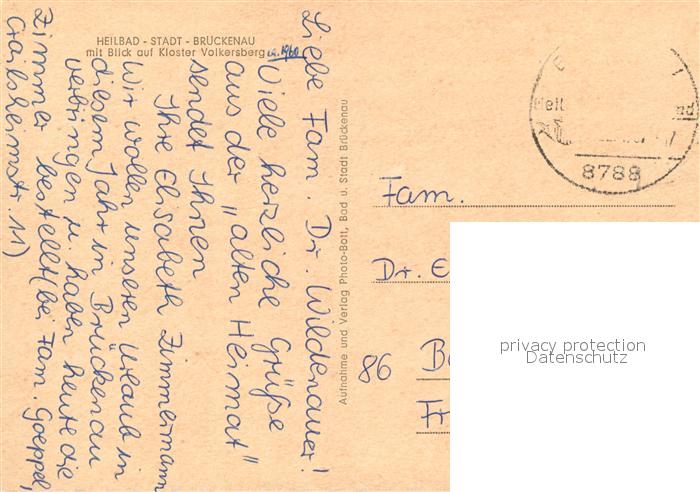 HEILBAD - STADT - BRÜCKENAU
mit Blick auf Kloster Volkersberg
u. 1960
Liebe Fam. Dr. Wildenauer!
Viele herzliche Grüße
aus der „alten Heimat"
sendet Ihnen
Ihre Elisabeth Zimmermann
Wir wollen unseren Urlaub in
diesem Jahr in Brückenau
verbringen u. haben heute die
Zimmer bestellt (bei Fam. Goeppel,
Crailsheimstr. 11)
Aufnahme und Verlag Photo-Bott, Bad u. Stadt Brückenau
8788
Fam.
Dr. E
86 Ba
privacy protection
Datenschutz